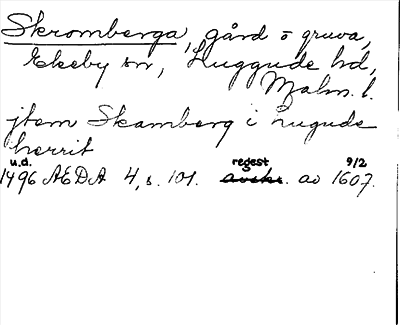 Skromberga, gård o gruva,
Ekeby sn, Luggude hd,
Malm. l.
jtem Skamberg i Lugude
herrit
u.d. regest 9/2
1496 AEDA 4, s. 101. avskr. av 1607.